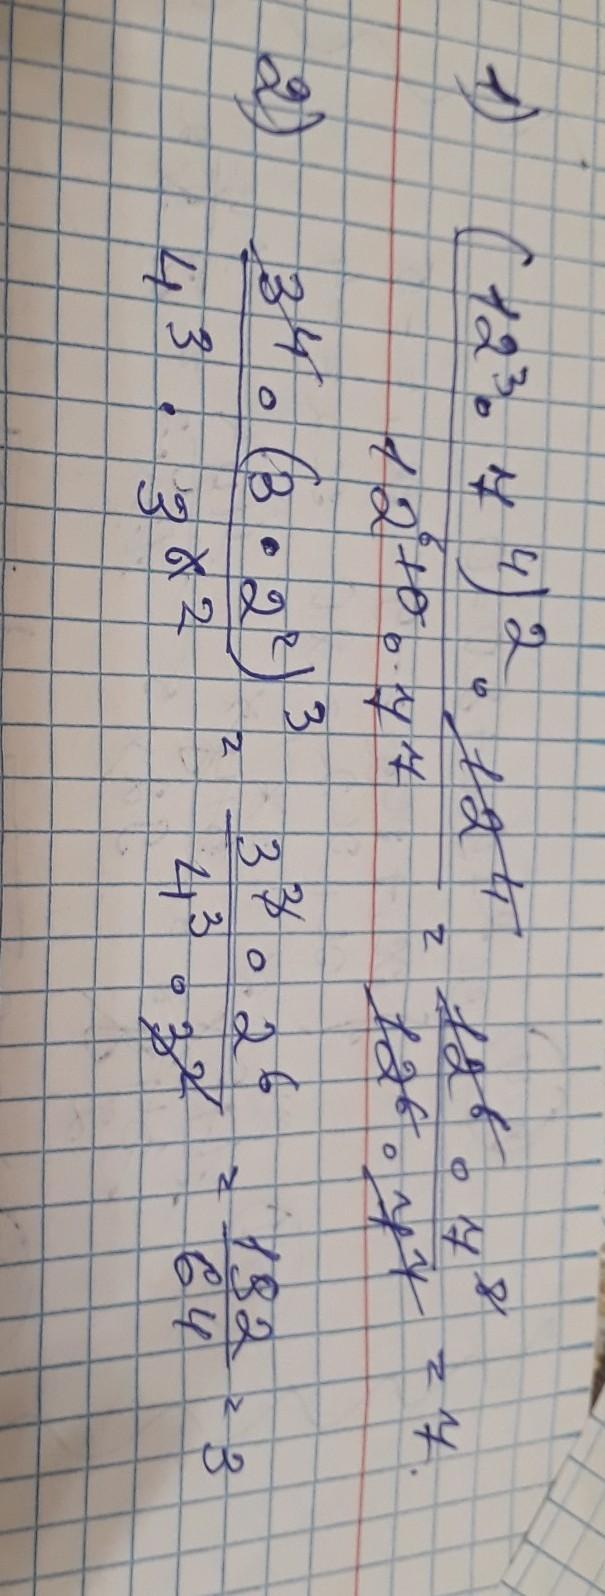 1) (12³ · 7⁴)² · 12⁴ / 12⁶⁺⁰ · 7⁷ = 12⁶ · 7⁸ / 12⁶ · 7⁷ = 7.
2) 3⁴ · (3 · 2²)³ / 4³ · 3⁶ˣ² = 3³ · 2⁶ / 4³ · 3² = 192 / 64 = 3